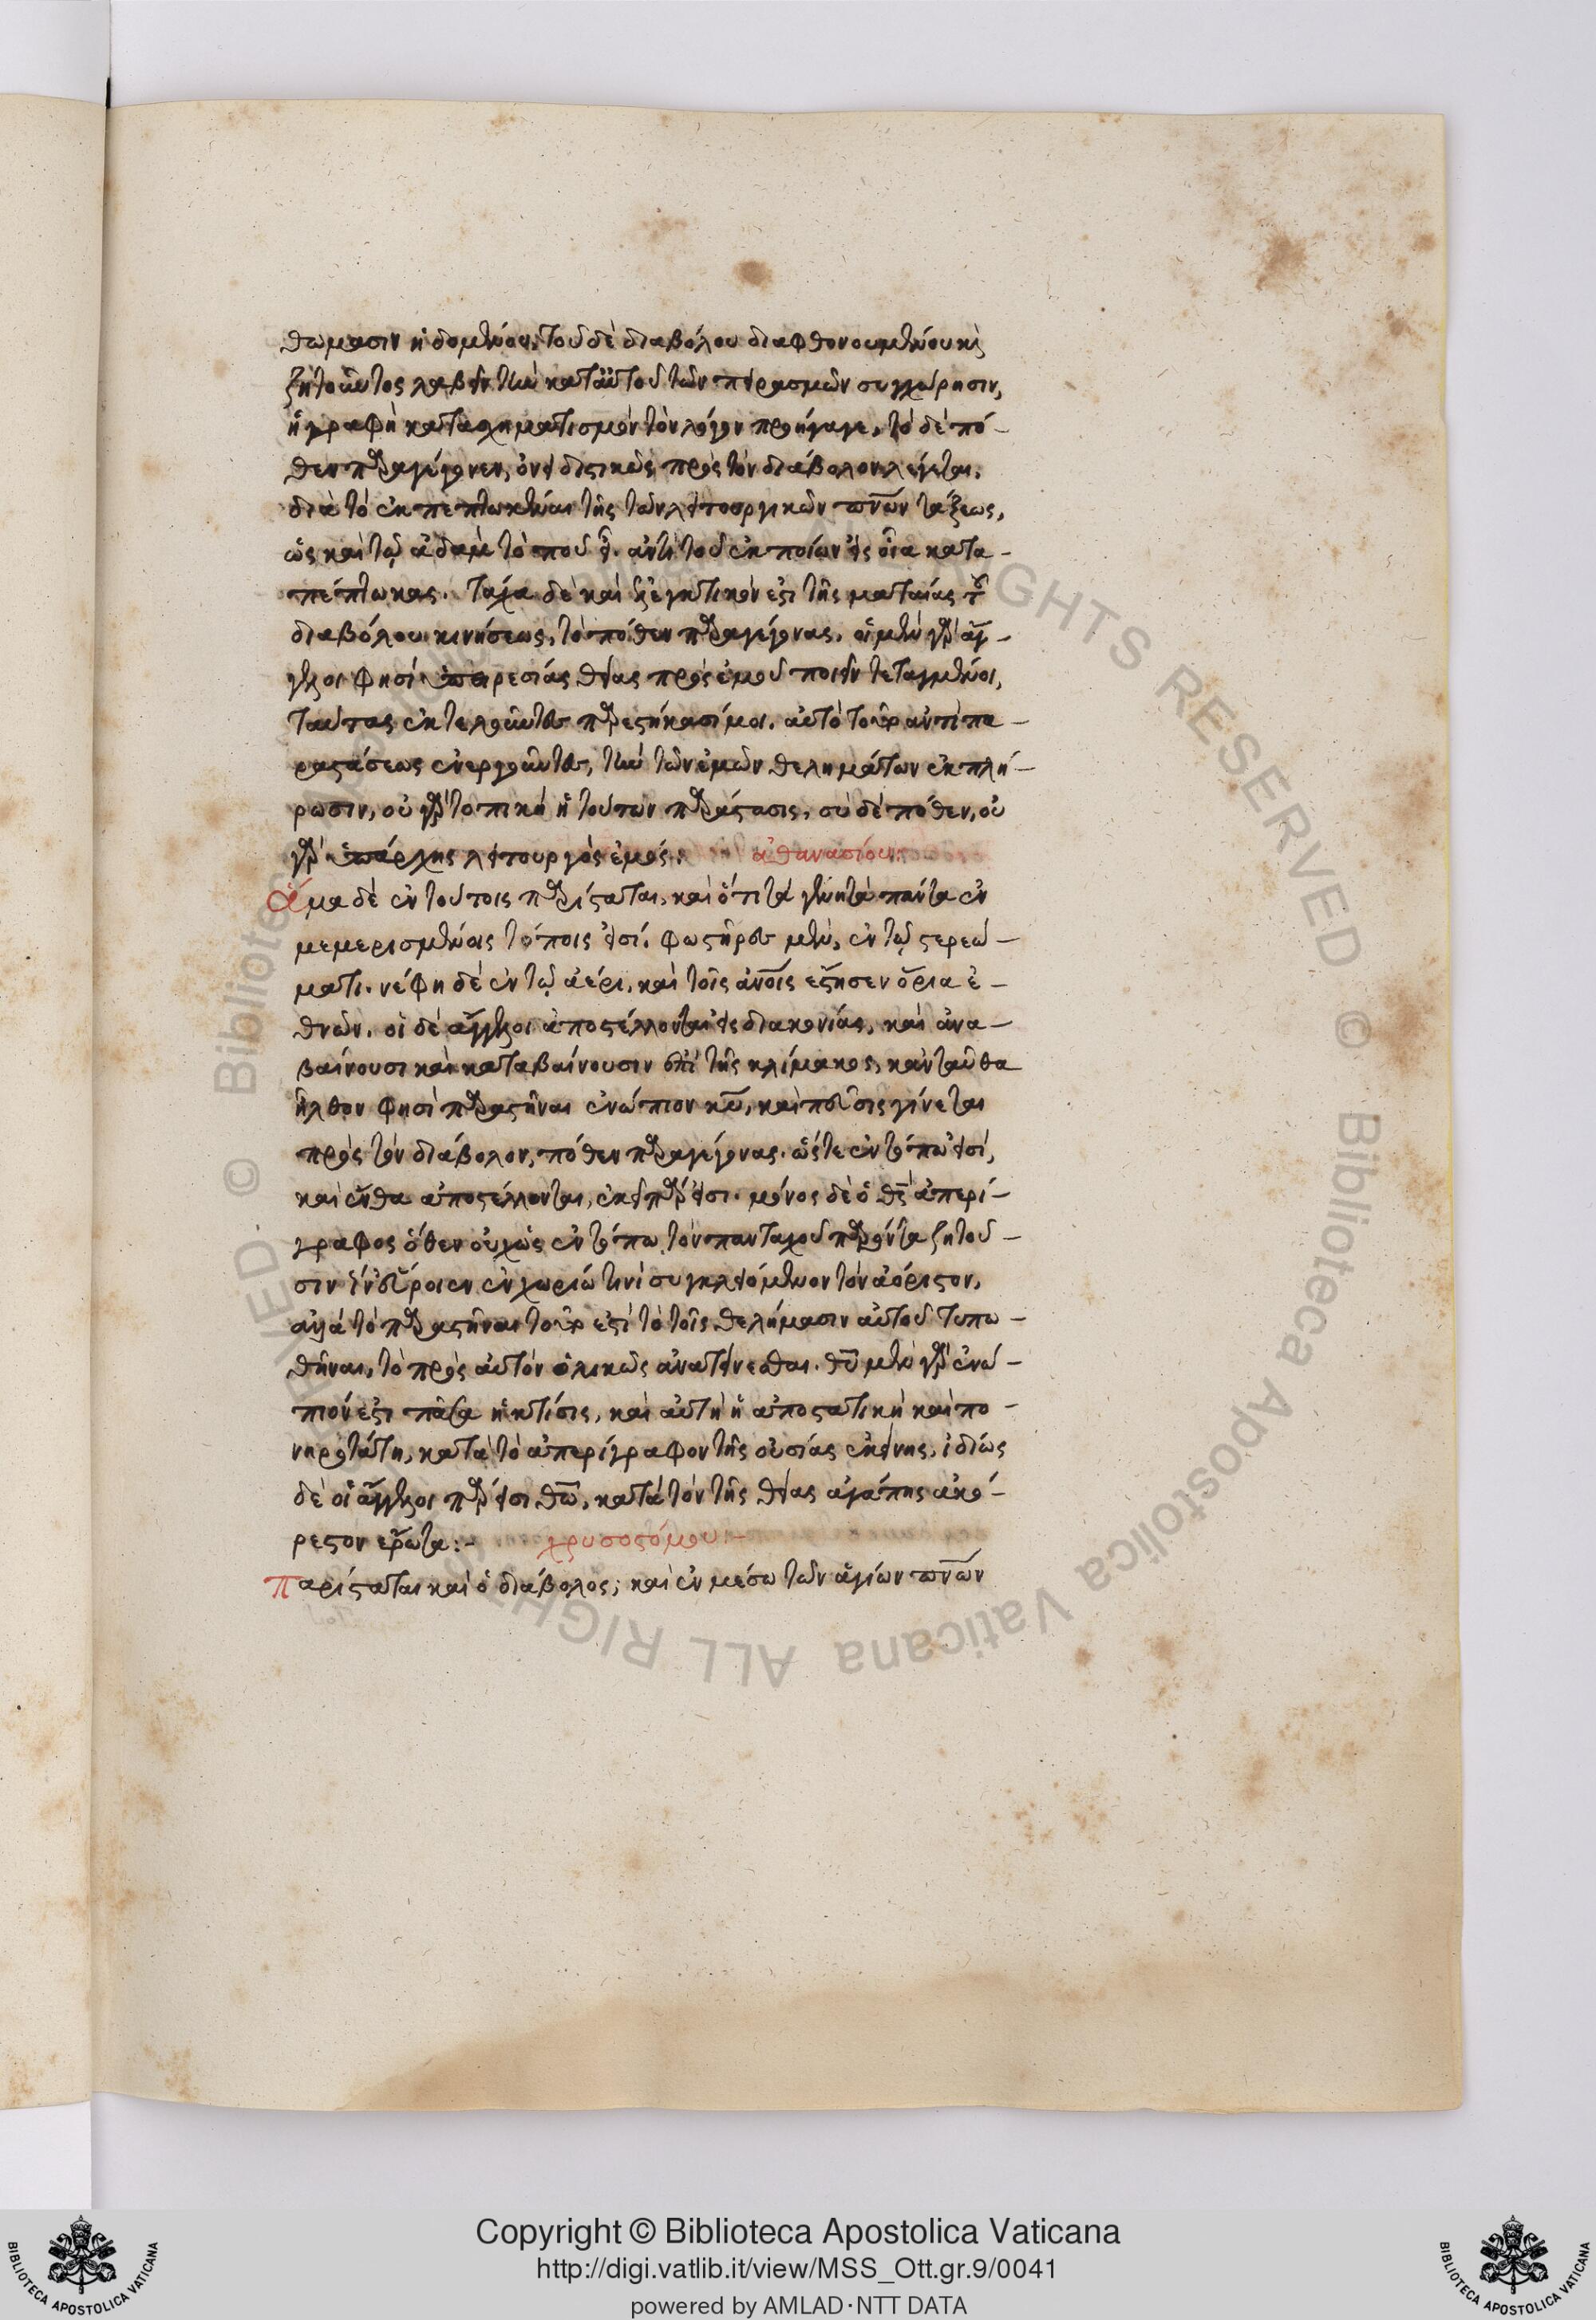 θώμασιν ἡδομένου, τοῦ δὲ διαβόλου διαφθονουμένου καὶ
ζητοῦντος λαβεῖν τὴν κατ' αὐτοῦ τῶν πειρασμῶν συγχώρησιν,
ἡ γραφὴ κατασχηματισμὸν τὸν λόγον προήγαγε, τὸ δὲ πό-
θεν παραγέγονεν, ὀνειδιστικῶς πρὸς τὸν διάβολον λέγεται,
διὰ τὸ ἐκπεπτωκέναι τῆς τῶν λειτουργικῶν πνῶν τάξεως,
ὡς καὶ τῷ ἀδὰμ τὸ ποῦ εἶ. ἀντὶ τοῦ ἐκ ποίων εἰς οἷα κατα-
πέπτωκας. τάχα δὲ καὶ ἐλεγκτικόν ἐστι τῆς ματαίας τοῦ
διαβόλου κινήσεως, τὸ πόθεν παραγέγονας. οἱ μὲν γὰρ ἄγ-
γελοι φησὶν ὑπηρεσίας θείας πρὸς ἐμοῦ ποιεῖν τεταγμένοι,
ταύτας ἐκτελοῦντες παρεστήκασί μοι. αὐτὸ τοῦτο ἀντὶ πα-
ραστάσεως ἐνεργοῦντες, τὴν τῶν ἐμῶν θελημάτων ἐκπλή-
ρωσιν, οὐ γὰρ τοπικὴ ἡ τούτων παράστασις, σὺ δὲ πόθεν, οὐ
γὰρ ὑπάρχεις λειτουργὸς ἐμός: ἀθανασίου:
Ἅμα δὲ ἐν τούτοις παρίσταται, καὶ ὅτι τὰ γενητὰ πάντα ἐν
μεμερισμένοις τόποις εἰσί. φωστῆρες μὲν, ἐν τῷ στερεώ-
ματι. νέφη δὲ ἐν τῷ ἀέρι, καὶ τοῖς ἀνοις ἔστησεν ὅρια ἐ-
θνῶν. οἱ δὲ ἄγγελοι ἀποστέλλονται εἰς διακονίας, καὶ ἀνα-
βαίνουσι καὶ καταβαίνουσιν ἐπὶ τῆς κλίμακος, κἀνταῦθα
ἦλθον φησὶ παραστῆναι ἐνώπιον κυ, καὶ πεῦσις γίνεται
πρὸς τὸν διάβολον, πόθεν παραγέγονας. ὥστε ἐν τόπῳ εἰσί,
καὶ ἔνθα ἀποστέλλονται, ἐκεῖ πάρεισι. μόνος δὲ ὁ θς ἀπερί-
γραφος ὅθεν οὐχ ὡς ἐν τόπῳ τὸν πανταχοῦ παρόντα ζητοῦ-
σιν ἐν χωρίῳ τινὶ συγκλειόμενον τὸν ἀόριστον,
ἀλλὰ τὸ παραστῆναι τοῦτο ἐστὶ τὸ τοῖς θελήμασιν αὐτοῦ τυπω-
θῆναι, τὸ πρὸς αὐτὸν ὁλικῶς ἀνατείνεσθαι. θυ μὲν γὰρ ἐνώ-
πιόν ἐστι πᾶσα ἡ κτίσις, καὶ αὐτὴ ἡ ἀποστατικὴ καὶ πο-
νηροτάτη, κατὰ τὸ ἀπερίγραφον τῆς οὐσίας ἐκείνης, ἰδίως
δὲ οἱ ἄγγελοι πάρεισι θω, κατὰ τὸν τῆς θείας ἀγάπης ἀκό-
ρεστον ἔρωτα:- χρυσοστόμου:-
Παρίσταται καὶ ὁ διάβολος, καὶ ἐν μέσῳ τῶν ἁγίων πνῶν
Copyright © Biblioteca Apostolica Vaticana
http://digi.vatlib.it/view/MSS_Ott.gr.9/0041
powered by AMLAD·NTT DATA
BIBLIOTECA APOSTOLICA VATICANA
BIBLIOTECA APOSTOLICA VATICANA
© Biblioteca Apostolica Vaticana ALL RIGHTS RESERVED